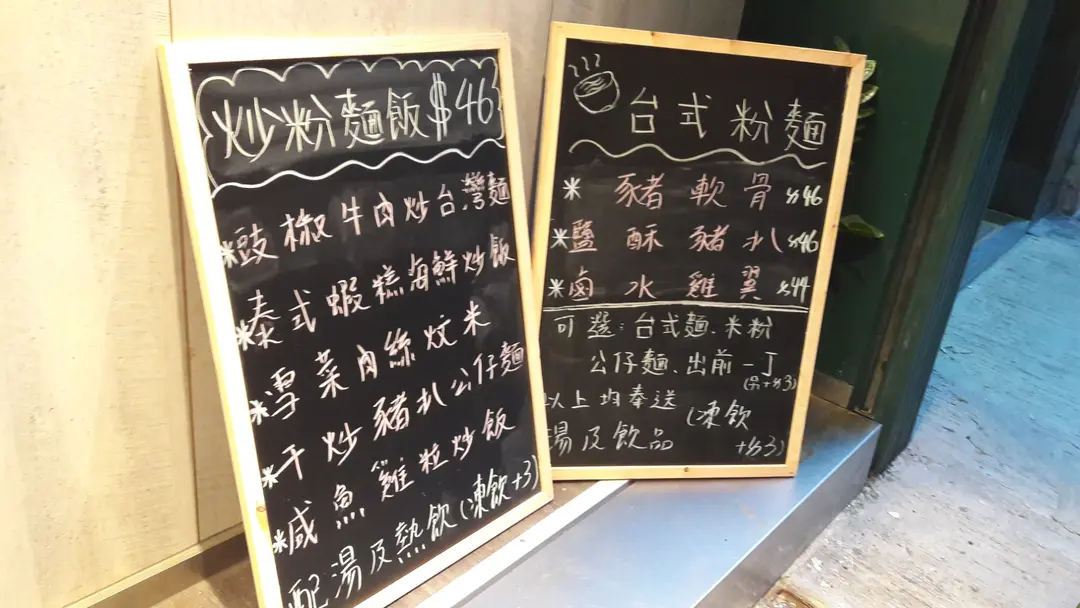 炒粉麵飯$46
*豉椒牛肉炒台灣麵
*泰式蝦糕海鮮炒飯
*雪菜肉絲炆米
*干炒豬扒公仔麵
*咸魚雞粒炒飯
配湯及熱飲(凍飲+3)
台式粉麵
* 豬軟骨 $46
*鹽酥豬扒 $46
*鹵水雞翼 $44
可選:台式麵、米粉
公仔麵、出前一丁
(另+$3)
以上均奉送(凍飲
湯及飲品 +$3)